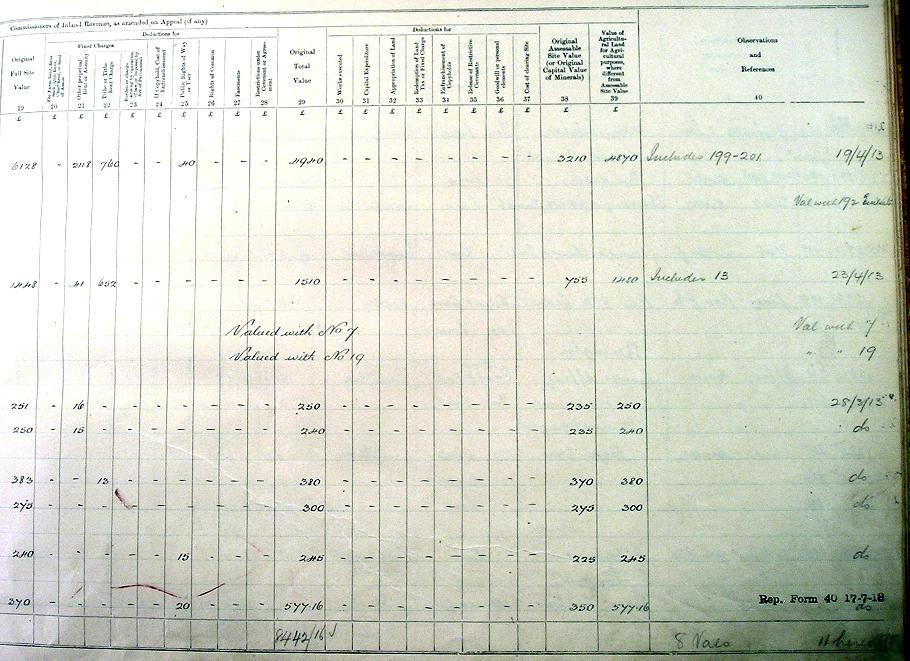 Commissioners of Inland Revenue, as amended on Appeal (if any)
Deductions for
Deductions for
Fixed Charges
Original Full Site Value
Other perpetual Rent or Annuity
Tithe or Tithe Rent Charge
If Copyhold, Cost of Enfranchisement
Public Rights of Way or User
Rights of Common
Easements
Restrictions under Covenant or Agreement
Original Total Value
Works executed
Capital Expenditure
Appropriation of Land
Redemption of Land Tax or Fixed Charge
Enfranchisement of Copyholds
Release of Restrictive Covenants
Goodwill or personal elements
Cost of clearing Site
Original Assessable Site Value (or Original Capital Value of Minerals)
Value of Agricultural Land for Agricultural purposes, where different from Assessable Site Value
Observations and References
19 20 21 22 23 24 25 26 27 28 29 30 31 32 33 34 35 36 37 38 39 40
£ £ £ £ £ £ £ £ £ £ £ £ £ £ £ £ £ £ £ £ £
6128 - 2118 760 40 - - - 4940 - - - - - - - - 3210 4870 Includes 199-201 19/4/13
Val with 192
1448 - 41 652 - - - 1510 - - - - - - - - 755 1480 Includes 13 23/4/13
Valued with No 7 Val with 7
Valued with No 19 " " 19
251 - 16 - - - - - - 250 - - - - - - - - 235 250 28/3/13
250 - 15 - - - - - - 240 - - - - - - - - 235 240 do
383 - - 13 - - - - - 380 - - - - - - - - 370 380 do
275 - - - - - - - - 300 - - - - - - - - 275 300 do
240 - - - - - 15 - - - 245 - - - - - - - - 225 245 do
Rep. Form 40 17-7-18
370 - - - - - 20 - - - 577.16 - - - - - - - - 350 577.16 do
8442/16 8 Vals 11